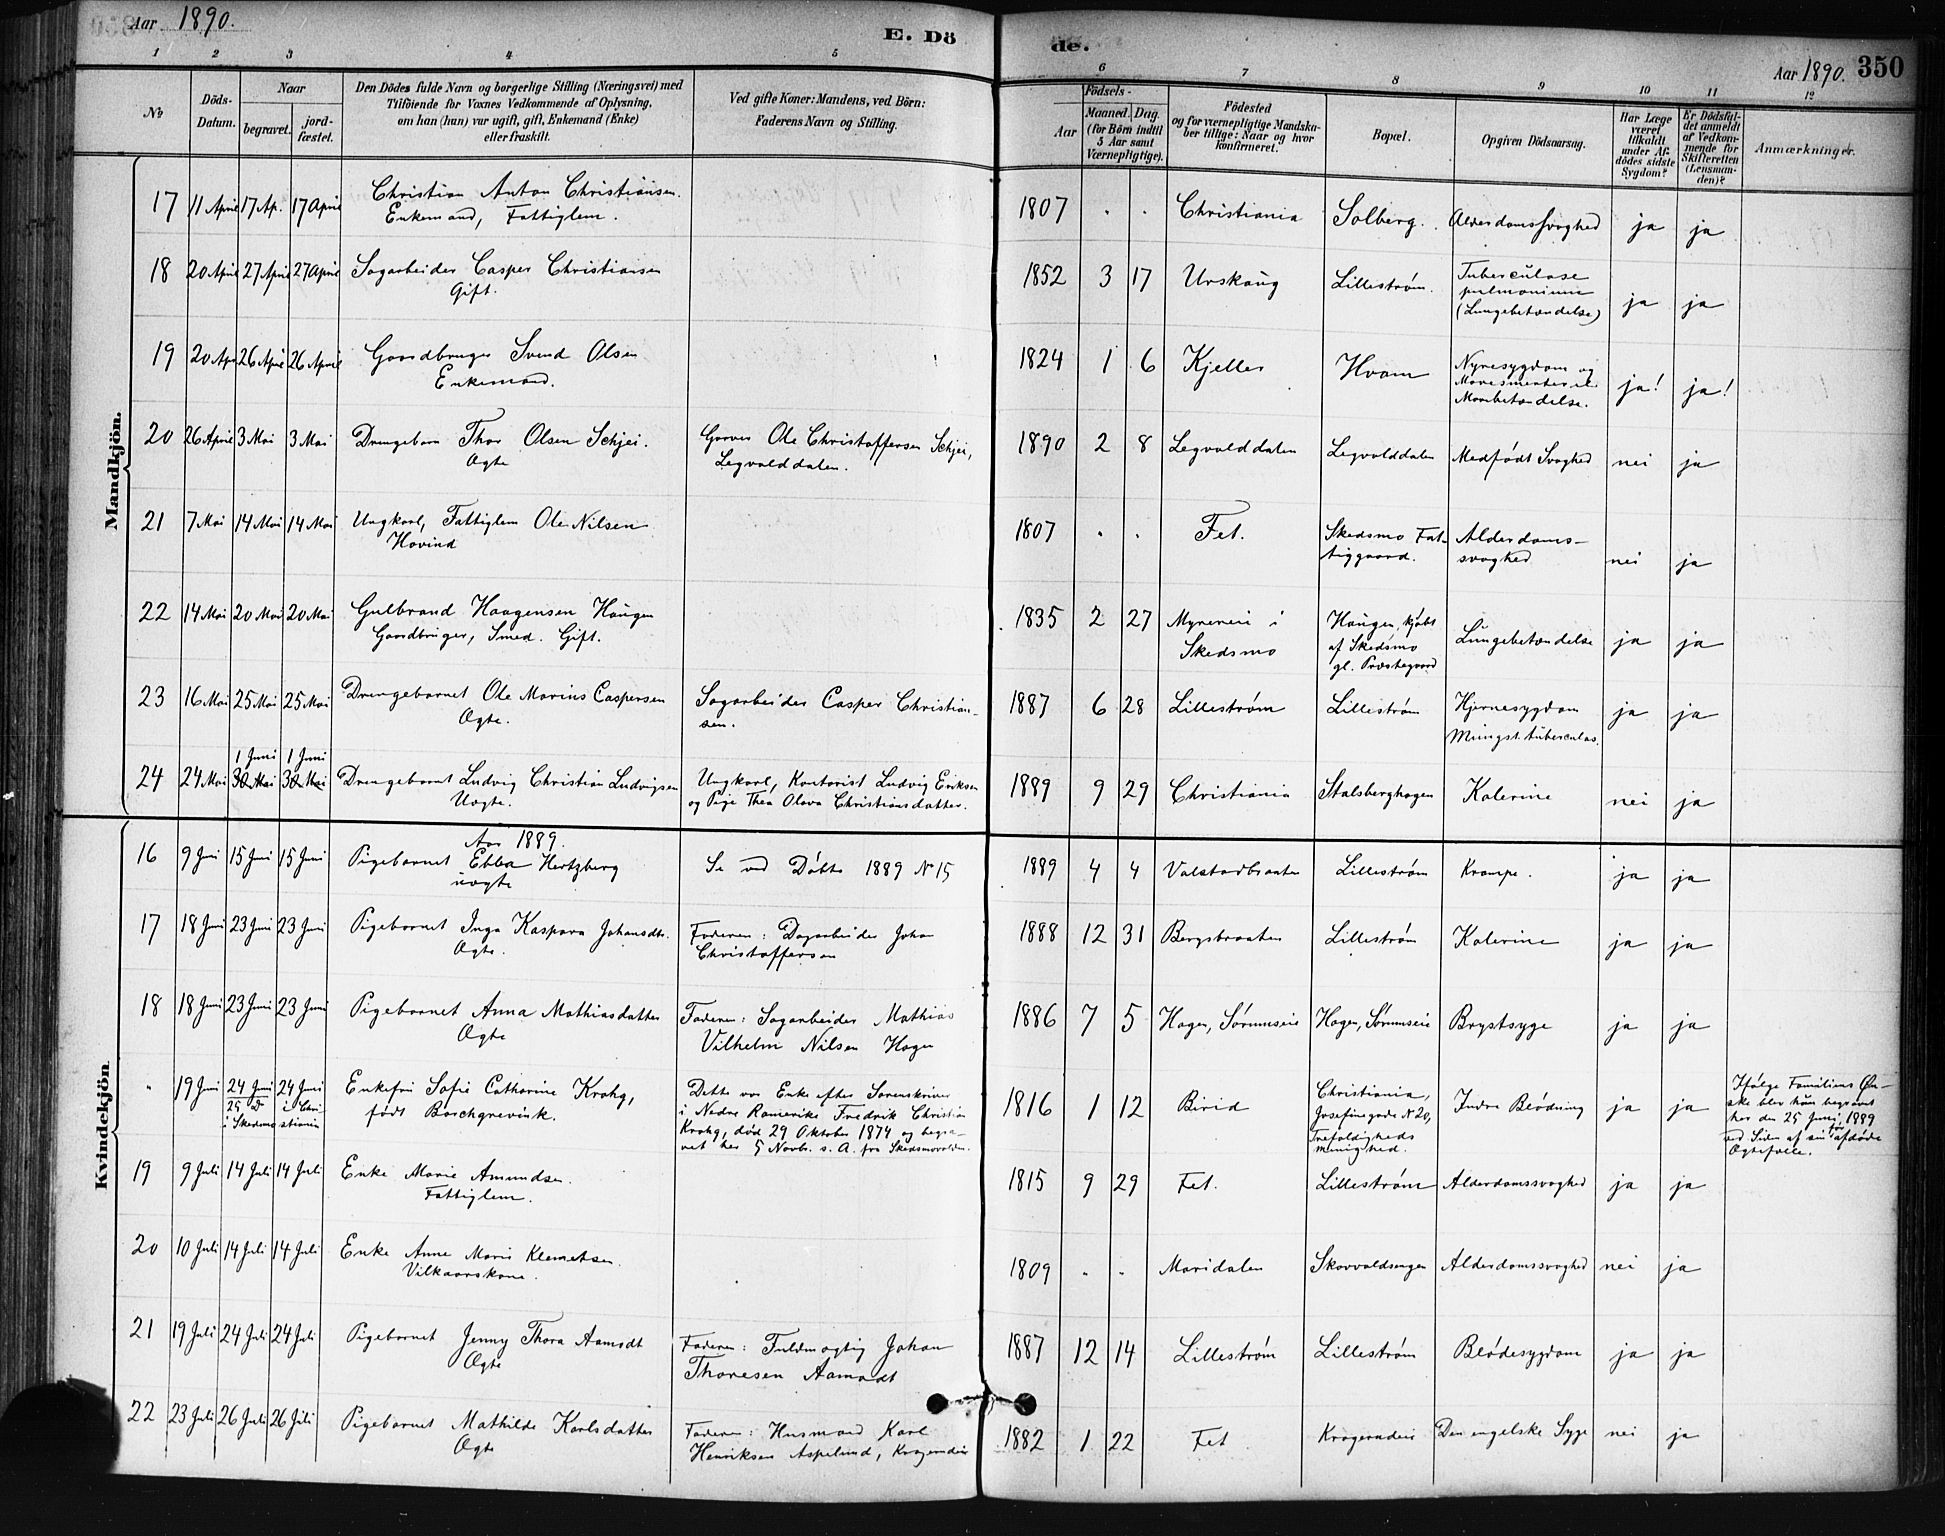 Aar 1890.
E. Dö
de.
Aar 1890. 350
1 2 3 4 5
6 7 8 9 10 11 12
No
Döds-Datum.
Naar
begravet.
jord-fæstet.
Den Dödes fulde Navn og borgerlige Stilling (Næringsvei) med
Tilföiende for Voxnes Vedkommende af Oplysning,
om han (hun) var ugift, gift, Enkemand (Enke)
eller fraskilt.
Ved gifte Koner: Mandens, ved Börn:
Faderens Navn og Stilling.
Födsels-
Aar
Maaned. Dag.
(for Börn indtil
5 Aar samt
Værnepligtige).
Födested
og for værnepligtige Mandska-
ber tillige: Naar og hvor
konfirmeret.
Bopæl.
Opgiven Dödsaarsag.
Har Læge
været
tilkaldt
under Af-
dödes sidste
Sygdom?
Er Dödsfal-
det anmeldt
af Vedkom-
mende for
Skifteretten
(Lensman-
den)?
Anmærkninger.
Mandkjön.
17 11 April 17 Ap. 17 April Christian Anton Christiansen. 1807 " " Christiania Solberg. Alderdomssvaghed ja ja
Enkemand, Fattiglem.
18 20 April 27 April 27 April Sagarbeider Casper Christiansen 1852 3 17 Urskoug Lillestrøm. Tuberculose
Gift. pulmonium
(Lungebetændelse) ja ja
19 20 Apr 26 April 26 April Gaardbruger Svend Olsen 1824 1 6 Kjeller Hvam Nyresygdom og
Enkemand.
Mavebetændelse. ja! ja!
20 26 April 3 Mai 3 Mai Drengebarn Thor Olsen Schjei. Garver Ole Christoffersen Schjei, 1890 2 8 Legvolddalen Legvolddalen Medfødt Svaghed nei ja
Ægte Legvolddalen.
21 7 Mai 14 Mai 14 Mai Ungkarl, Fattiglem Ole Nilsen 1807 " " Fet. Skedsmo Fat- Alderdoms-
Hovind tiggaard. svaghed nei ja
22 14 Mai 20 Mai 20 Mai Gulbrand Haagensen Haugen 1835 2 27 Myreneie i Haugen, kjøbt Lungebetændelse ja ja
Gaardbruger, Smed. Gift. Skedsmo af Skedsmo
gl. Præstegaard
23 16 Mai 25 Mai 25 Mai Drengebarnet Ole Marius Caspersen Sagarbeider Casper Christian- 1887 6 28 Lillestrøm Lillestrøm Hjernesygdom ja ja
Ægte. sen. tuberculos.
1 Juni 1 Juni
24 24 Mai 30 Mai 30 Mai Drengebarnt Ludvig Christian Ludvigsen Ungkarl, Kontorist Ludvig Eriksen 1889 9 29 Christiania Stalsberghagen Kolerine nei ja
Uægte. og Pige Thea Olava Christiansdatter.
Kvindekjön
Aar 1889.
16 9 Juni 15 Juni 15 Juni Pigebarnet Ebba Hertzberg Se ved Døbte 1889 N 15 1889 4 4 Valstadbraaten Lillestrøm Krampe. ja ja
uægte
17 18 Juni 23 Juni 23 Juni Pigebarnet Inga Kaspara Johansdtr. Faderen: Dagarbeider Johan 1888 12 31 Bergsbraaten Lillestrøm Kolerine ja ja
Ægte. Christoffersen
18 18 Juni 23 Juni 23 Juni Pigebarnet Anna Mathiasdatter Faderen: Sagarbeider Mathias 1886 7 5 Hagen, Sørumseie Hagen, Sørumseie Brystsyge ja ja
Ægte Vilhelm Nilsen Hagen
" 19 Juni 24 Juni 24 Juni Enkefru Sofie Catharine Krohg, Dette var Enke efter Sorenskriver 1816 1 12 Birid Christiania, Indre Blødning ja ja Ifølge Familiens Øn-
25 D i Chri- født Borchgrevink. i Nedre Romerike Fredrik Christian Josefinegade N 20, ske blev hun begravet
i Skedsmo stiania Krohg, død 29 Oktober 1874 og begra- Trefoldigheds her den 25 Juni 1889
vet her 5 Novbr. s. A. fra Skedsmovolden. menighed. ved Siden af sin før afdøde
Ægtefælle.
19 9 Juli 14 Juli 14 Juli Enke Marie Amundsen. 1815 9 29 Fet. Lillestrøm Alderdomssvaghed ja ja
Fattiglem.
20 10 Juli 14 Juli 14 Juli Enke Anne Marie Klemetsen. 1809 " " Maridalen Skovvoldsengen Alderdomssvaghed nei ja
Vilkaarskone.
21 19 Juli 24 Juli 24 Juli Pigebarnet Jenny Thora Aamodt Faderen: Fuldmægtig Johan 1887 12 14 Lillestrøm Lillestrøm Blødesygdom ja ja
Ægte Thoresen Aamodt
22 23 Juli 26 Juli 26 Juli Pigebarnet Mathilde Karlsdatter Faderen: Husmand Karl 1882 1 22 Fet Krogerudeie Den engelske Syge nei ja
Ægte Henriksen Aspelund, Krogerudeie